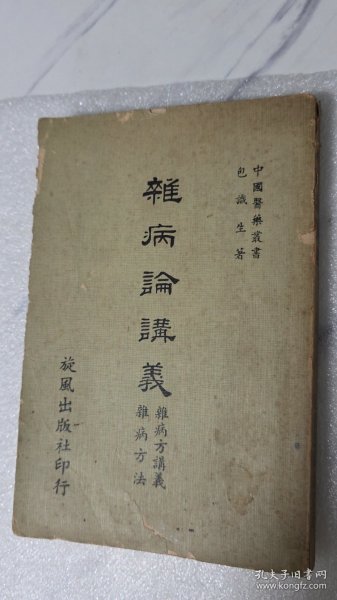 中國醫藥叢書
包識生著
雜病論講義
雜病方講義
雜病方法
旋風出版社印行
孔夫子旧书网